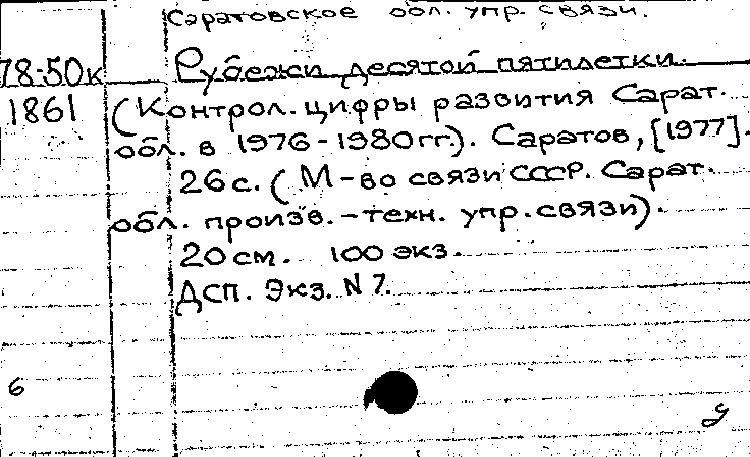 Саратовское обл. упр. связи.
78-50к Рубежи десятой пятилетки.
1861 (Контрол. цифры развития Сарат.
обл. в 1976-1980гг.). Саратов, [1977].
26с. (М-во связи СССР. Сарат.
обл. произв.-техн. упр. связи).
20см. 100 экз.
ДСП. Экз. N 7.
6